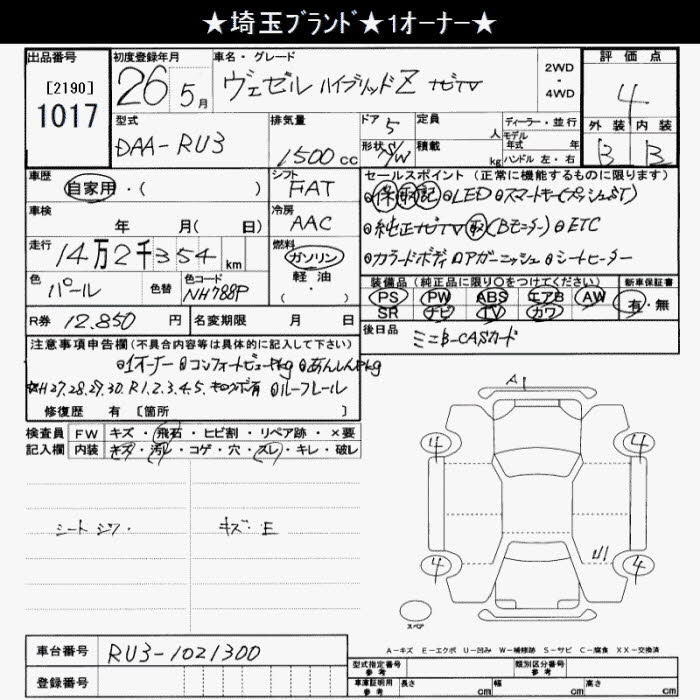 ★埼玉ブランド★1オーナー★
出品番号 初度登録年月 車名・グレード 2WD・4WD 評価点
[2190]
1017
26年 5月 ヴェゼル ハイブリッドZ ナビTV 4
型式 排気量 ドア 5 定員 人 ディーラー・並行 外装 内装
モデル年式 年
DAA-RU3 1500cc 形状 S/W 積載 kg ハンドル 左・右 B B
車歴 シフト セールスポイント (正常に機能するものに限ります)
自家用・( ) FAT 保 取 記 LED スマートキー(プッシュST)
車検 冷房 純正ナビTV 取 (Bモニター) ETC
年 月( 日) AAC
走行 燃料 カラードボディ ロアガーニッシュ シートヒーター
14万2千354km ガソリン
軽・油
・( )
色 色替 色コード 装備品 (純正品に限り○をつけてください) 新車保証書
パール NH788P PS PW ABS エアB AW 有・無
SR ナビ TV カワ
R券 12.850円 名変期限 月 日 後日品 ミニB-CASカード
注意事項申告欄 (不具合内容等は具体的に記入して下さい)
1オーナー コンフォートビューPkg あんしんPkg
H27.28.29.30.R1.2.3.4.5. キロクボ有 ルーフレール
修復歴 有 [箇所 ]
検査員 FW キズ・飛石・ヒビ割・リペア跡・×要
記入欄 内装 キズ・汚レ・コゲ・穴・スレ・キレ・破レ
A1
4 4
シート シワ. キズ. E
U1
4 4
スペア
A-キズ E-エクボ U-凹み W-補修跡 S-サビ C-腐食 XX-交換済
車台番号 RU3-1021300
型式指定番号 参考 類別区分番号 参考
登録番号
車庫証明用 参考 長さ cm 幅 cm 高さ cm